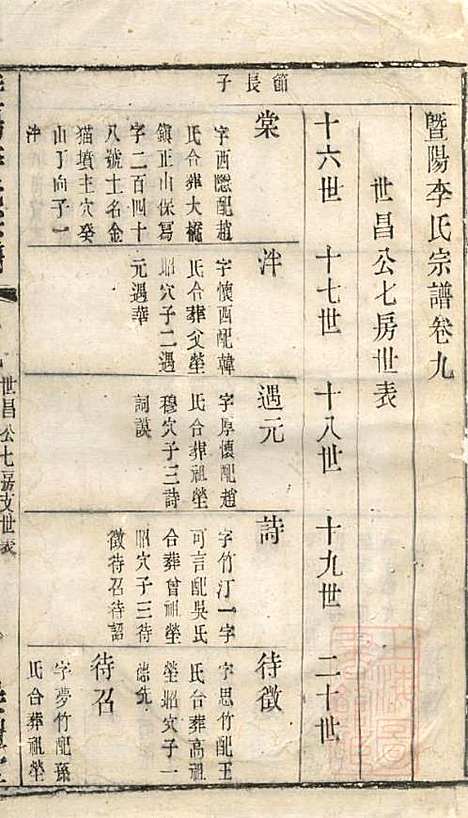 暨陽李氏宗譜卷九
世昌公七房世表
十六世
十七世
十八世
十九世
二十世
節長子
棠
字西隱配趙
氏合葬大橋
鎮正山保寫
字二百四十
八號土名金
猫墳主穴癸
山丁向子一
泮
泮
字懷西配韓
氏合葬父塋
昭穴子二遇
元遇華
遇元
字厚懷配趙
氏合葬祖塋
穆穴子三詩
詞謨
詩
字竹汀一字
可言配吳氏
合葬曾祖塋
昭穴子三待
徵待召待詔
待徵
字思竹配王
氏合葬高祖
塋昭穴子一
待召
字夢竹配孫
氏合葬祖塋
世昌公七房支世表